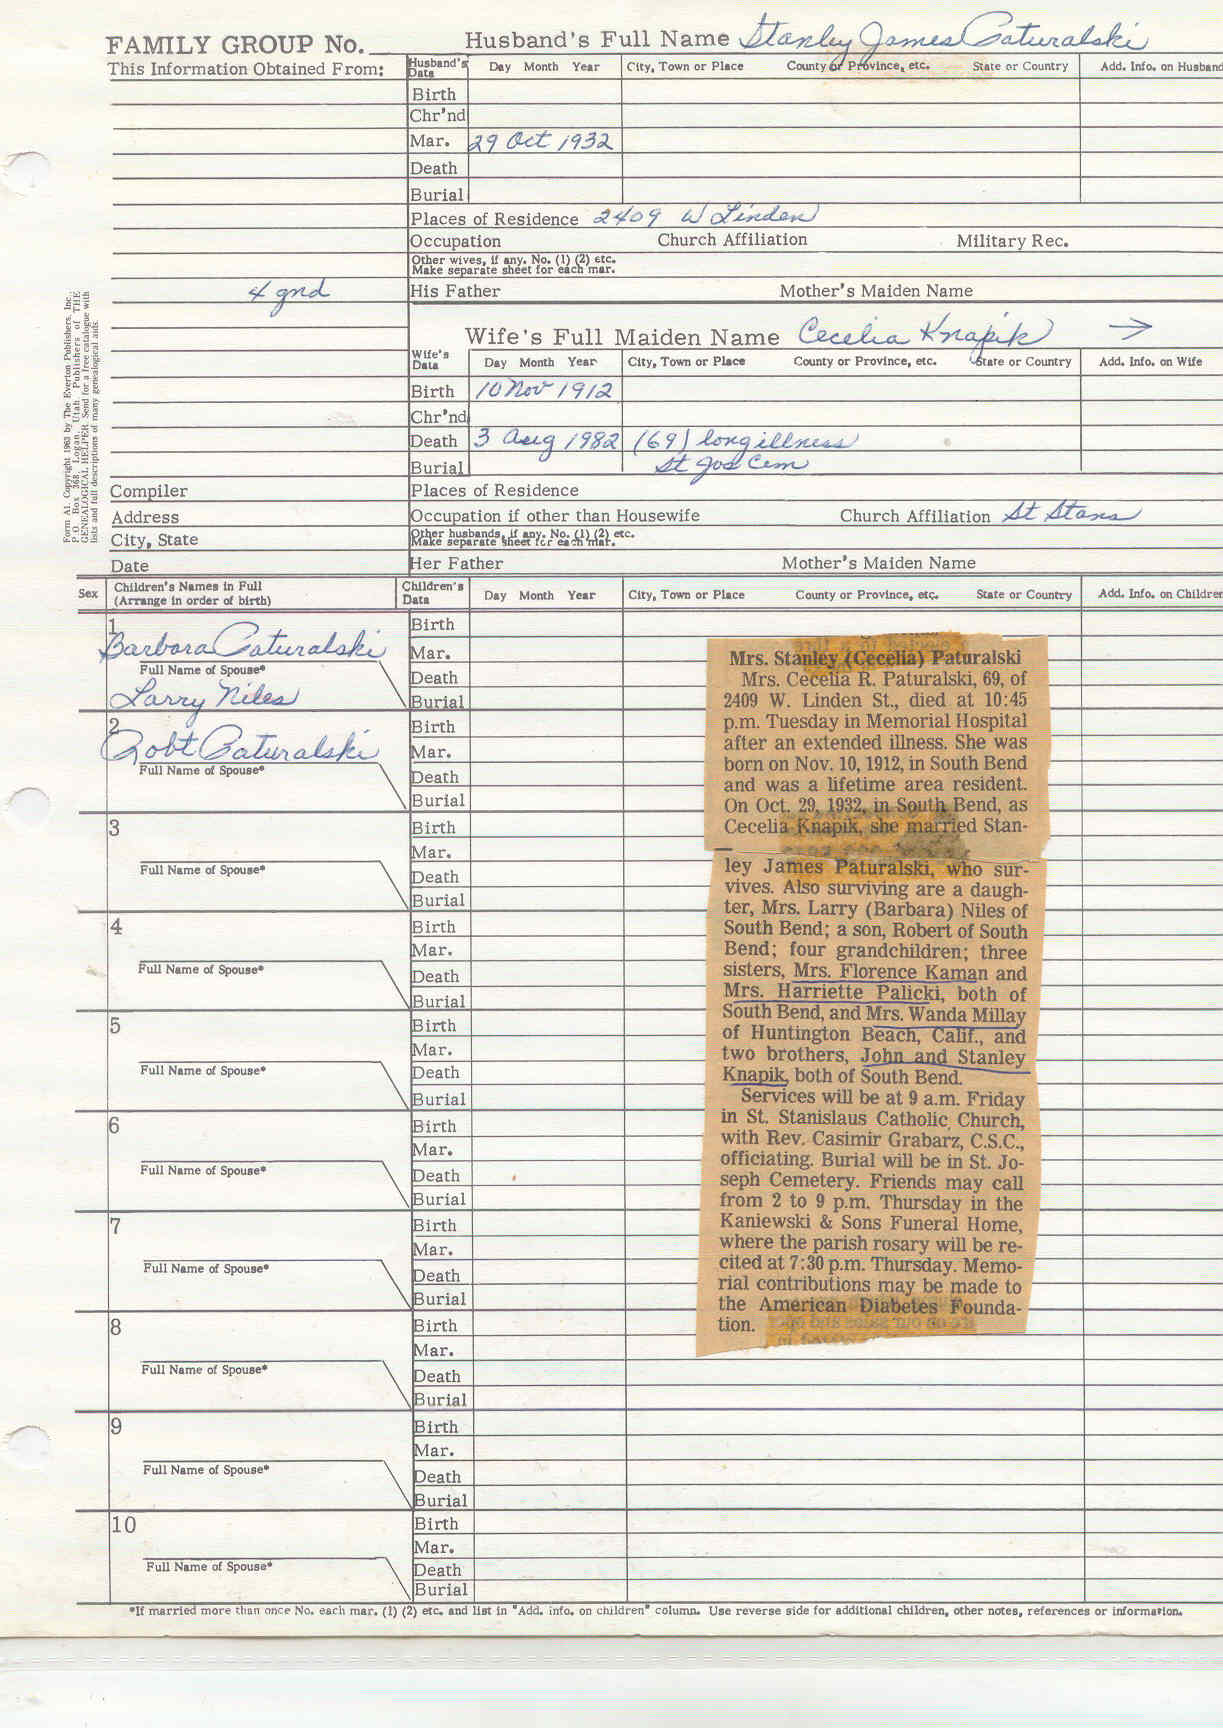 FAMILY GROUP No. Husband's Full Name Stanley James Paturalski
This Information Obtained From:
Husband's Data Day Month Year City, Town or Place County or Province, etc. State or Country Add. Info. on Husband
Birth
Chr'nd
Mar. 29 Oct 1932
Death
Burial
Places of Residence 2409 W Linden
Occupation Church Affiliation Military Rec.
Other wives, if any. No. (1) (2) etc.
Make separate sheet for each mar.
4 gnd
His Father Mother's Maiden Name
Wife's Full Maiden Name Cecelia Knapik →
Wife's Data Day Month Year City, Town or Place County or Province, etc. State or Country Add. Info. on Wife
Birth 10 Nov 1912
Chr'nd
Death 3 Aug 1982 (69) long illness
Burial St Jos Cem
Compiler Places of Residence
Address Occupation if other than Housewife Church Affiliation St Stans
City, State Other husbands, if any. No. (1) (2) etc.
Make separate sheet for each mar.
Date Her Father Mother's Maiden Name
Form A1. Copyright 1963 by The Everton Publishers, Inc.,
P.O. Box 368, Logan, Utah. Publishers of THE
GENEALOGICAL HELPER. Send for a free catalogue with
lists and full descriptions of many genealogical aids.
Sex Children's Names in Full
(Arrange in order of birth)
Children's Data Day Month Year City, Town or Place County or Province, etc. State or Country Add. Info. on Children
1 Birth
Barbara Paturalski Mar.
Full Name of Spouse* Death
Larry Niles Burial
2 Birth
Robt Paturalski Mar.
Full Name of Spouse* Death
Burial
3 Birth
Mar.
Full Name of Spouse* Death
Burial
4 Birth
Mar.
Full Name of Spouse* Death
Burial
5 Birth
Mar.
Full Name of Spouse* Death
Burial
6 Birth
Mar.
Full Name of Spouse* Death
Burial
7 Birth
Mar.
Full Name of Spouse* Death
Burial
8 Birth
Mar.
Full Name of Spouse* Death
Burial
9 Birth
Mar.
Full Name of Spouse* Death
Burial
10 Birth
Mar.
Full Name of Spouse* Death
Burial
Mrs. Stanley (Cecelia) Paturalski
Mrs. Cecelia R. Paturalski, 69, of
2409 W. Linden St., died at 10:45
p.m. Tuesday in Memorial Hospital
after an extended illness. She was
born on Nov. 10, 1912, in South Bend
and was a lifetime area resident.
On Oct. 29, 1932, in South Bend, as
Cecelia Knapik, she married Stan-
ley James Paturalski, who sur-
vives. Also surviving are a daugh-
ter, Mrs. Larry (Barbara) Niles of
South Bend; a son, Robert of South
Bend; four grandchildren; three
sisters, Mrs. Florence Kaman and
Mrs. Harriette Palicki, both of
South Bend, and Mrs. Wanda Millay
of Huntington Beach, Calif., and
two brothers, John and Stanley
Knapik, both of South Bend.
Services will be at 9 a.m. Friday
in St. Stanislaus Catholic Church,
with Rev. Casimir Grabarz, C.S.C.,
officiating. Burial will be in St. Jo-
seph Cemetery. Friends may call
from 2 to 9 p.m. Thursday in the
Kaniewski & Sons Funeral Home,
where the parish rosary will be re-
cited at 7:30 p.m. Thursday. Memo-
rial contributions may be made to
the American Diabetes Founda-
tion.
*If married more than once No. each mar. (1) (2) etc. and list in "Add. info. on children" column. Use reverse side for additional children, other notes, references or information.